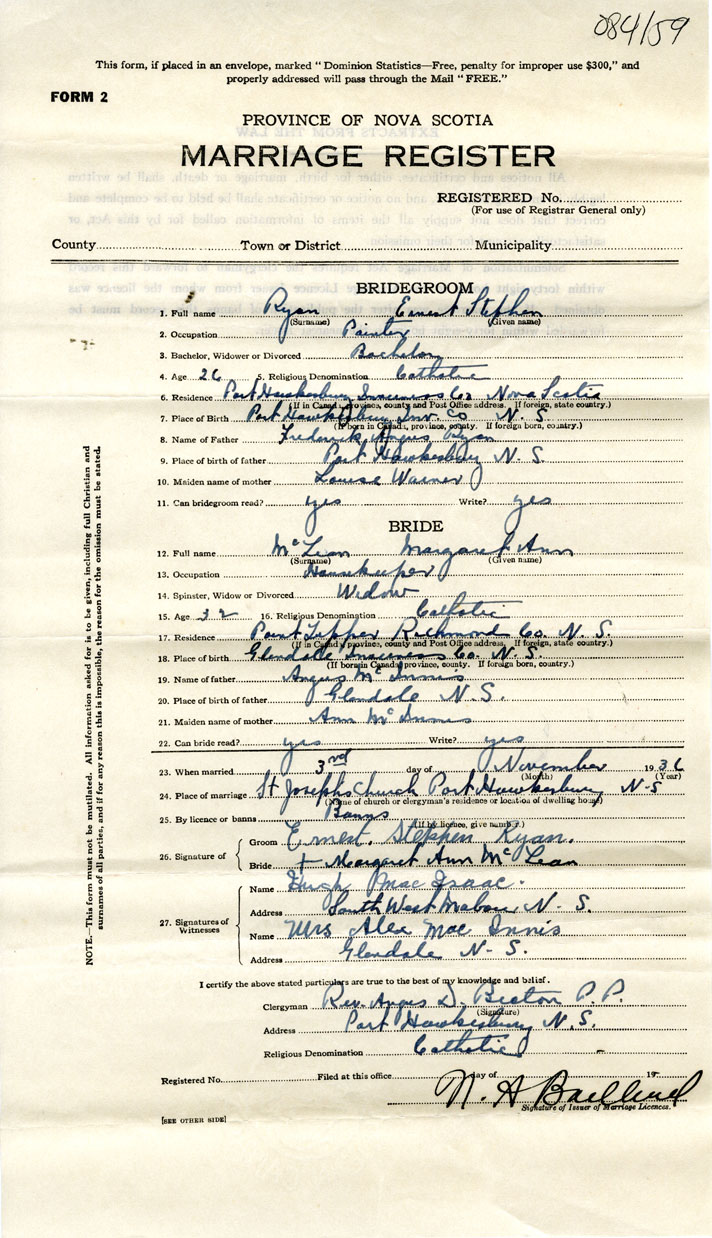 084/59
This form, if placed in an envelope, marked "Dominion Statistics—Free, penalty for improper use $300," and
properly addressed will pass through the Mail "FREE."
FORM 2
PROVINCE OF NOVA SCOTIA
MARRIAGE REGISTER
REGISTERED No.
(For use of Registrar General only)
County Town or District Municipality
BRIDEGROOM
1. Full name Ryan Ernest Stephen
(Surname) (Given name)
2. Occupation Painter
3. Bachelor, Widower or Divorced Bachelor
4. Age 26 5. Religious Denomination Catholic
6. Residence Port Hawkesbury Inverness Co. Nova Scotia
(If in Canada, province, county and Post Office address. If foreign, state country.)
7. Place of Birth Port Hawkesbury Inv. Co N. S.
(If born in Canada, province, county. If foreign born, country.)
8. Name of Father Frederick Angus Ryan
9. Place of birth of father Port Hawkesbury N. S.
10. Maiden name of mother Louise Warner
11. Can bridegroom read? yes Write? yes
BRIDE
12. Full name McLean Margaret Ann
(Surname) (Given name)
13. Occupation Housekeeper
14. Spinster, Widow or Divorced Widow
15. Age 32 16. Religious Denomination Catholic
17. Residence Point Tupper Richmond Co. N. S.
(If in Canada, province, county and Post Office address. If foreign, state country.)
18. Place of birth Glendale Inverness Co. N. S.
(If born in Canada, province, county. If foreign born, country.)
19. Name of father Angus McInnis
20. Place of birth of father Glendale N.S.
21. Maiden name of mother Ann McInnis
22. Can bride read? yes Write? yes
23. When married 3rd day of November 1936
(Month) (Year)
24. Place of marriage St Josephs Church Port Hawkesbury N-S
(Name of church or clergyman's residence or location of dwelling house)
25. By licence or banns Banns
(If by licence, give number.)
26. Signature of
Groom Ernest. Stephen Ryan.
Bride + Margaret Ann McLean
27. Signatures of Witnesses
Name Hugh MacIsaac.
Address South West Mabou, N. S.
Name Mrs Alex MacInnis
Address Glendale N-S.
I certify the above stated particulars are true to the best of my knowledge and belief.
Clergyman Rev. Angus D. Beaton P.P.
(Signature)
Address Port Hawkesbury N.S.
Religious Denomination Catholic
Registered No. Filed at this office day of 19
N. A
Signature of Issuer of Marriage Licences.
[SEE OTHER SIDE]
NOTE.—This form must not be mutilated. All information asked for is to be given, including full Christian and
surnames of all parties, and if for any reason this is impossible, the reason for the omission must be stated.